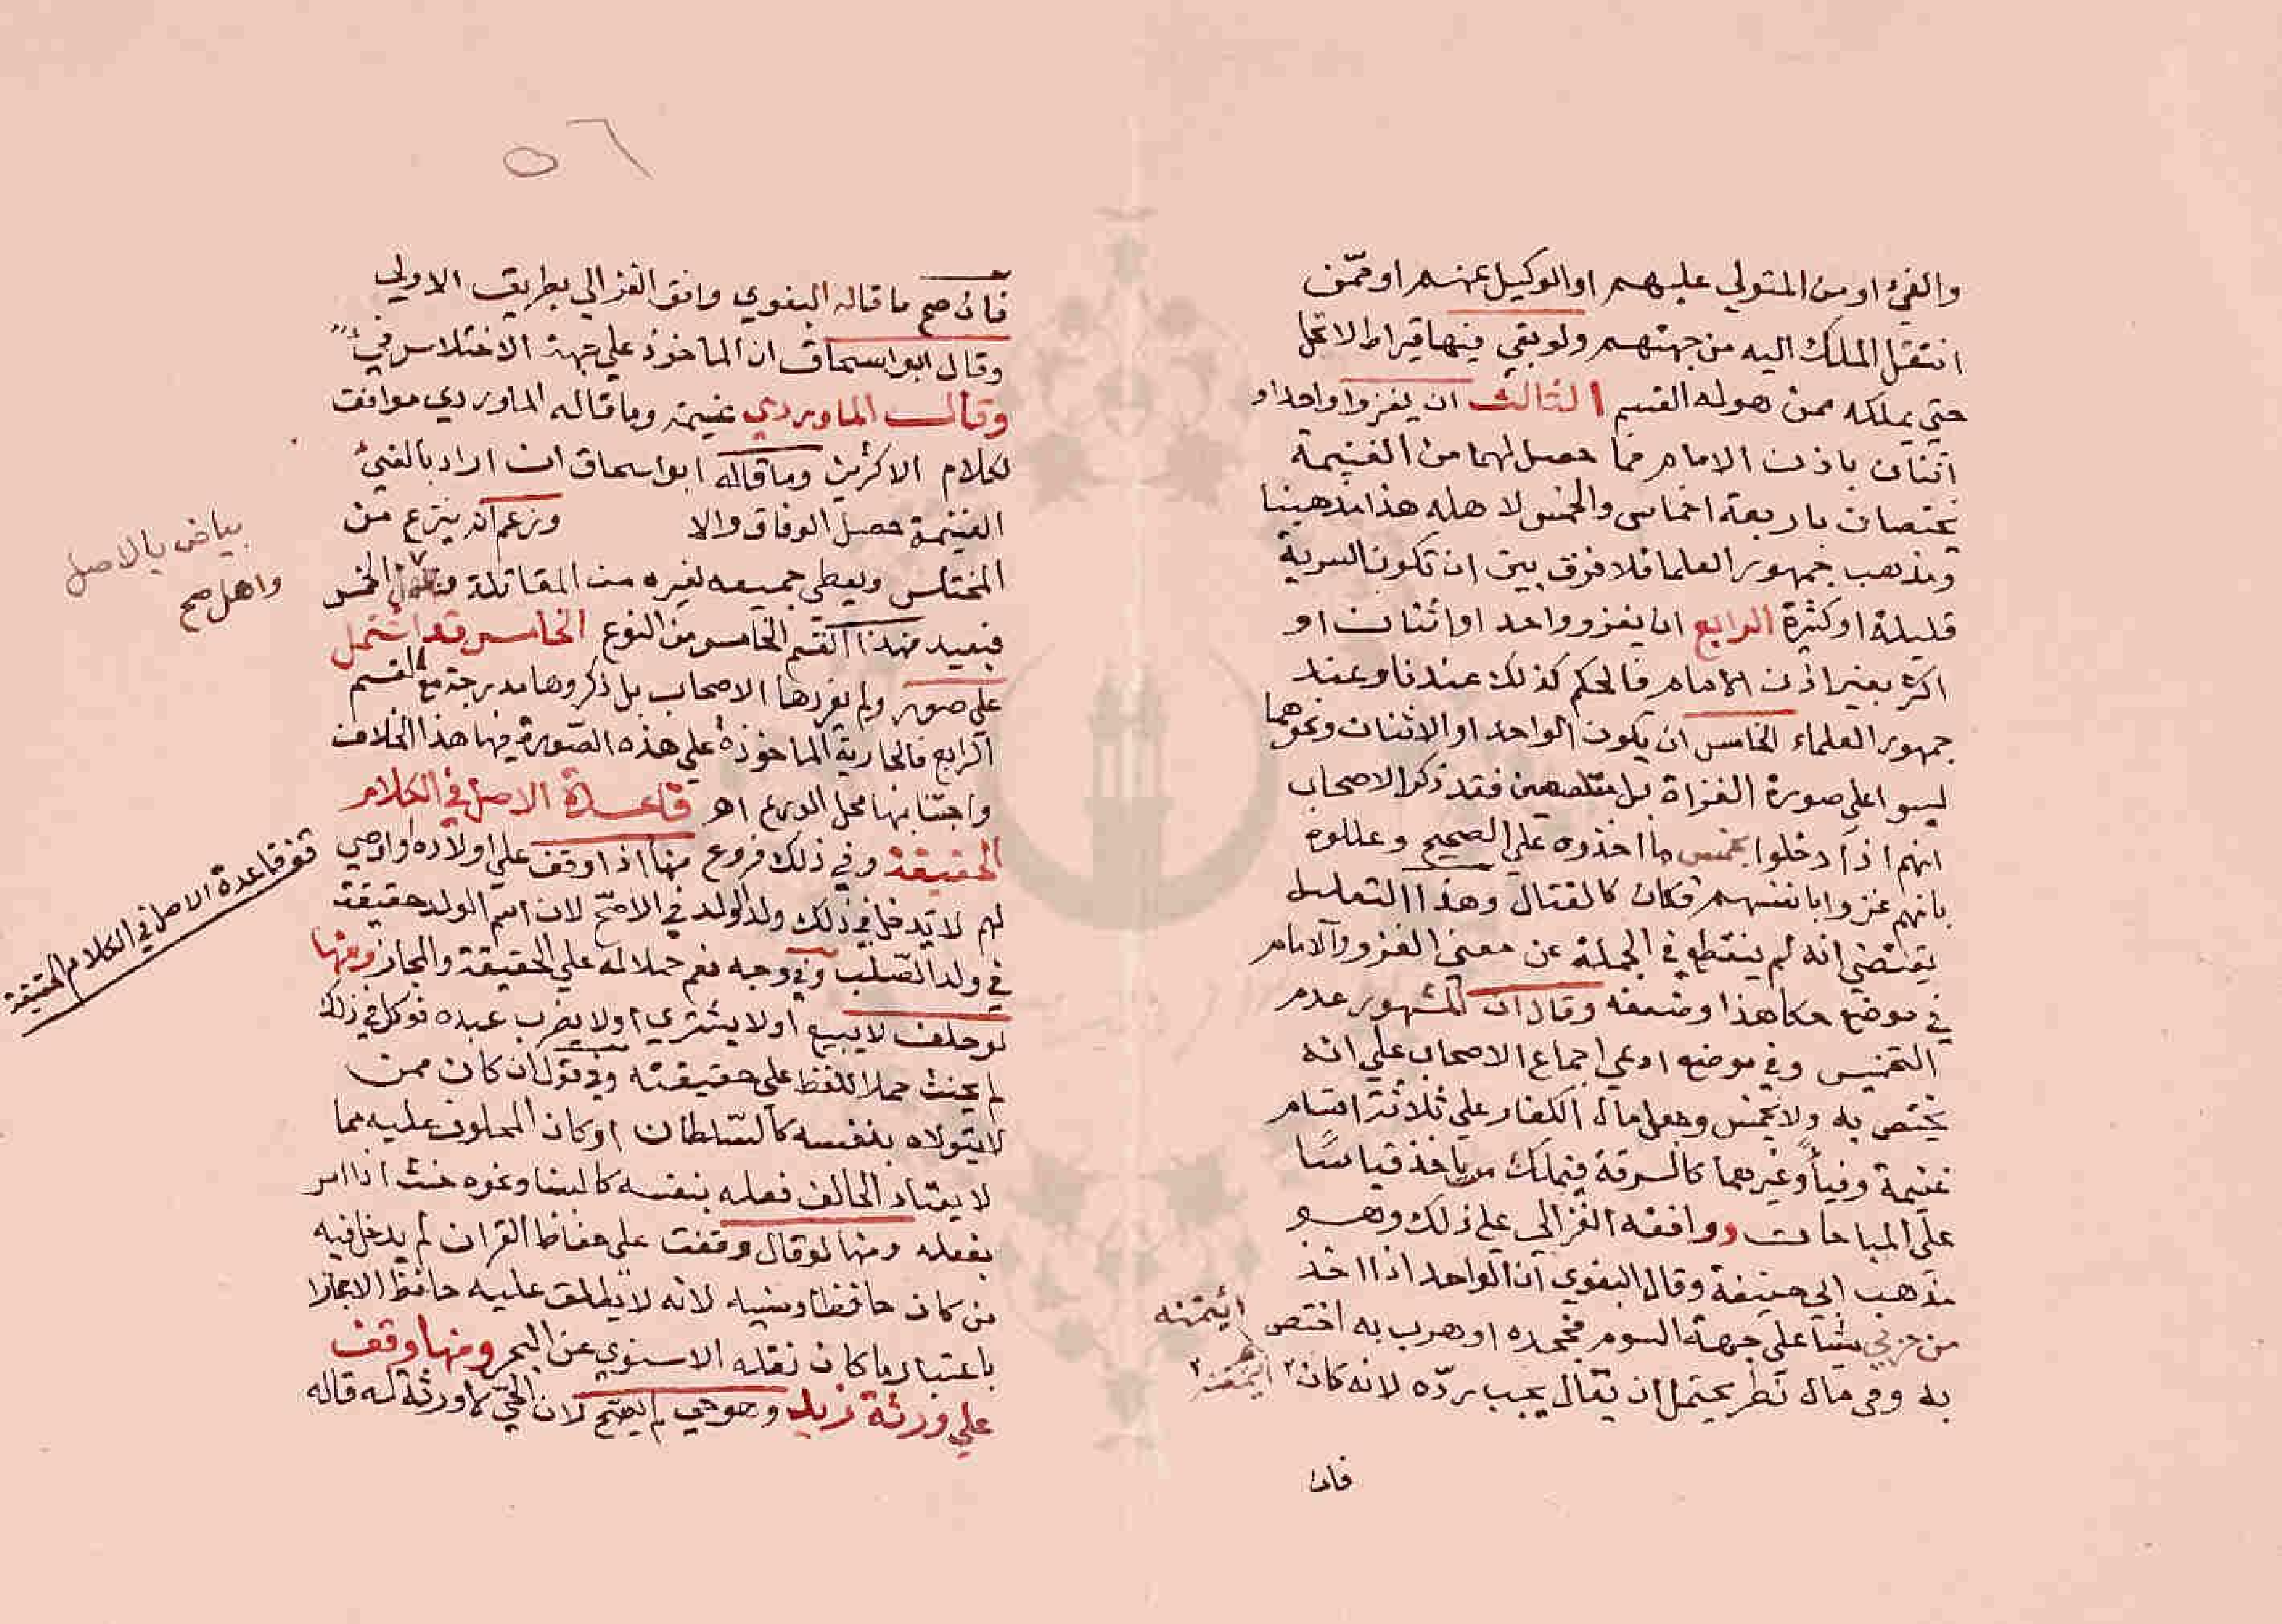 والفيء او من المتولي عليهم او الوكيل عنهم او ممن
انتقل الملك اليه من جهتهم ولو بقي فيها قيراط لا تحل
حتى يملكه ممن هو له القسم الثالث ان يغزوا واحد او
اثنان باذن الامام فما حصل لهما من الغنيمة
يختصان باربعة اخماس والخمس لاهله هذا مذهبنا
ومذهب جمهور العلما فلا فرق بين ان تكون السرية
قليلة او كثيرة الرابع ان يغزو واحد او اثنان او
اكثر بغير اذن الامام فالحكم كذلك عندنا وعند
جمهور العلماء الخامس ان يكون الواحد او الاثنان ونحوهما
ليسوا على صورة الغزاة بل متلصصين فقد ذكر الاصحاب
انهم اذا دخلوا يخمس ما اخذوه على الصحيح وعللوه
بانهم غزوا بانفسهم فكان كالقتال وهذا التعليل
يقتضي انه لم ينقطع في الجملة عن معنى الغزو والامام
في موضع حكا هذا وضعفه وقال ان المشهور عدم
التخميس وفي موضع ادعى اجماع الاصحاب على انه
يختص به ولا يخمس وجعل مال الكفار على ثلاثة اقسام
غنيمة وفيأ وغيرهما كالسرقة فيملك من ياخذ قياسا
على المباحات ووافقه الغزالي على ذلك وهو
مذهب ابي حنيفة وقال البغوي ان الواحد اذا اخذ
من حربي شيأ على جهة السوم فجحده او هرب به اختص
به وفي مال نظر يحتمل ان يقال يجب رده لانه كان
ائتمنه
فان
٥٦
فان صح ما قاله البغوي وافق الغزالي بطريق الاولى
وقال ابو اسحاق ان الماخوذ على جهة الاختلاس فيء
وقال الماوردي غنيمة وما قاله الماوردي موافق
لكلام الاكثرين وما قاله ابو اسحاق ان اراد بالفيء
الغنيمة حصل الوفاق والا وزعم انه ينزع من
المختلس ويعطى جميعه لغيره من المقاتلة الخمس
فبعيد فهذا القسم الخامس من النوع الخامس قد اشتمل
على صور ولم يفردها الاصحاب بل ذكروها مدرجة مع القسم
الرابع فالجارية الماخوذة على هذه الصورة فيها هذا الخلاف
واجتنابها محل الورع اهـ قاعدة الاصل في الكلام
الحقيقة وفي ذلك فروع منها اذا وقف على اولاده او اوصي
لهم لا يدخل في ذلك ولد الولد في الاصح لان اسم الولد حقيقة
في ولد الصلب وفي وجه نعم حملا له على الحقيقة والمجاز ومنها
لو حلف لا يبيع او لا يشتري او لا يضرب عبده فوكل في ذلك
لم يحنث حملا للفظ على حقيقته وفي قول ان كان ممن
لا يتولاه بنفسه كالسلطان او كان المحلوف عليه مما
لا يعتاد الحالف فعله بنفسه كالبنا ونحوه حنث اذا امر
بفعله ومنها لو قال وقفت على حفاظ القران لم يدخل فيه
من كان حافظا ونسيه لانه لا يطلق عليه حافظ الا مجازا
باعتبار ما كان نقله الاسنوي عن البحر ومنها وقف
على ورثة زيد وهو حي لم يصح لان الحي لا ورثة له قاله
بياض بالاصل
واهل صح
قف قاعدة الاصل في الكلام الحقيقة